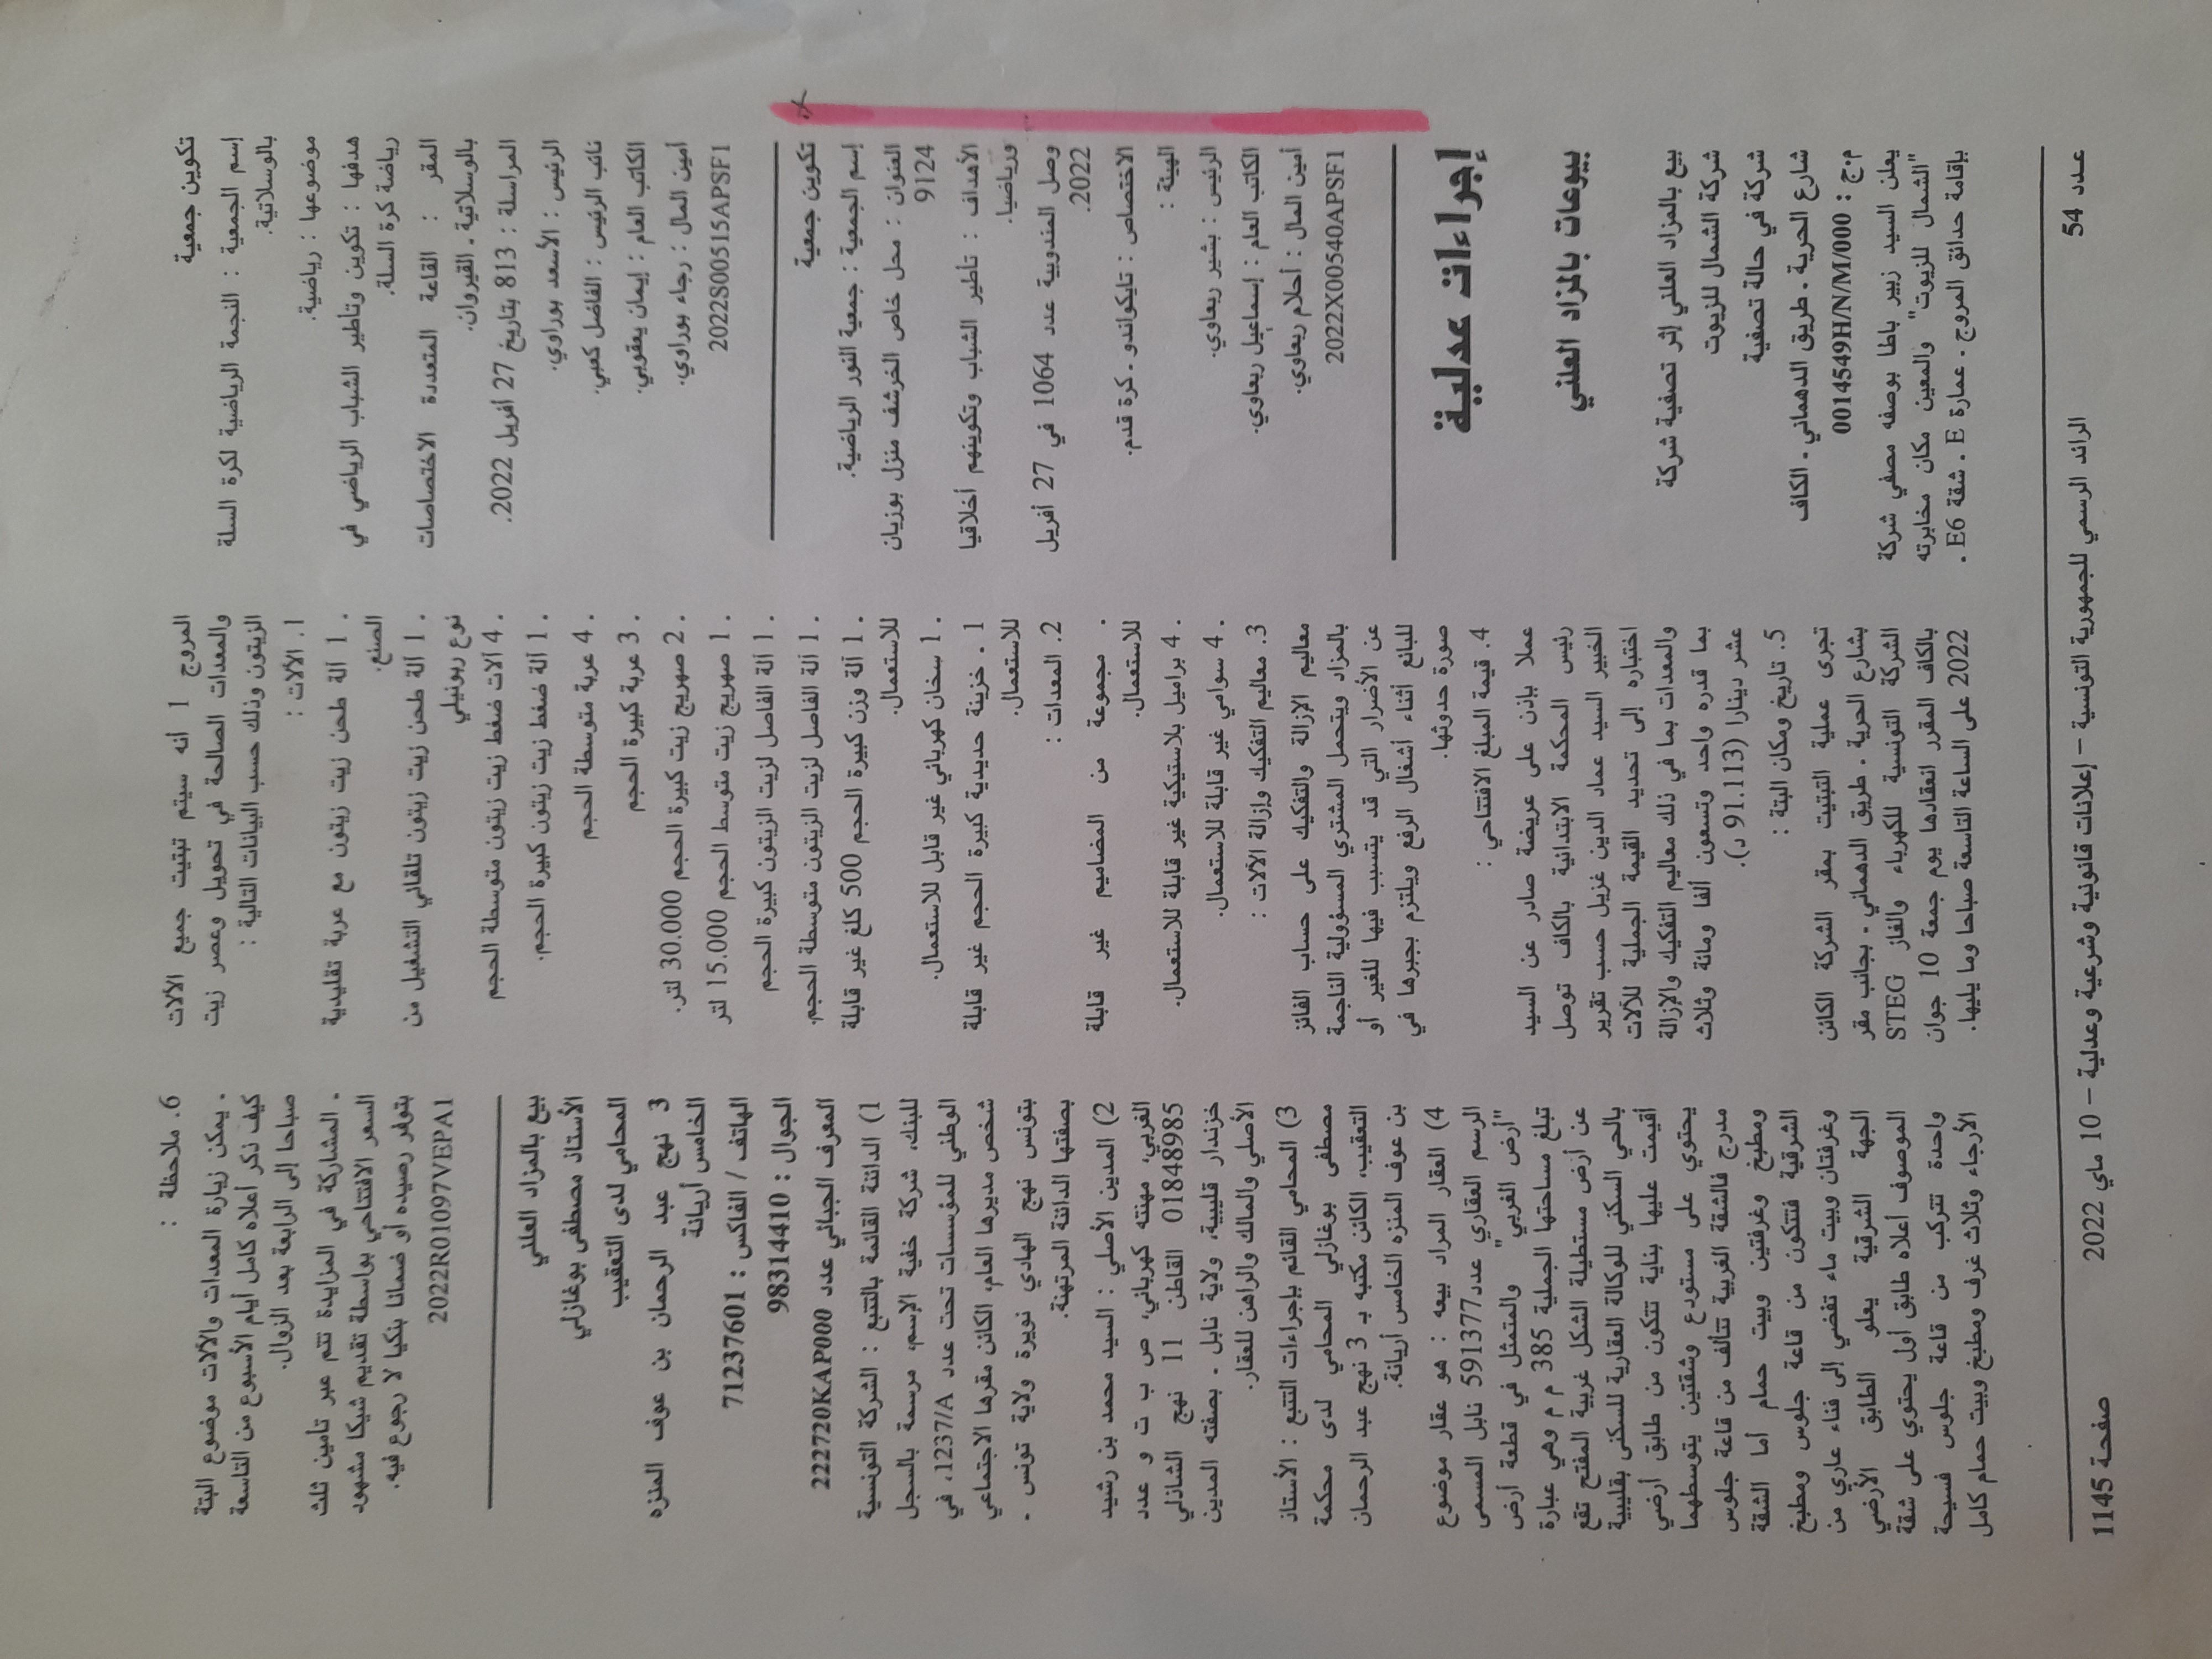 تكوين جمعية
إسم الجمعية : النجمة الرياضية لكرة السلة
بالوسلاتية.
موضوعها : رياضية.
هدفها : تكوين وتأطير الشباب الرياضي في
رياضة كرة السلة.
المقر : القاعة المتعددة الاختصاصات
بالوسلاتية ـ القيروان.
المراسلة : 813 بتاريخ 27 أفريل 2022.
الرئيس : الأسعد بوراوي.
نائب الرئيس : الفاضل كعبي.
الكاتب العام : إيمان يعقوبي.
أمين المال : رجاء بوراوي.
2022S00515APSF1
تكوين جمعية
إسم الجمعية : جمعية النور الرياضية.
العنوان : محل خاص الخرشف منزل بوزيان
9124
الأهداف : تأطير الشباب وتكوينهم أخلاقيا
ورياضيا.
وصل المندوبية عدد 1064 في 27 أفريل
2022.
الاختصاص : تايكواندو ـ كرة قدم.
الهيئة :
الرئيس : بشير ربعاوي.
الكاتب العام : إسماعيل ربعاوي.
أمين المال : أحلام ربعاوي.
2022X00540APSF1
إجراءات عدلية
بيوعات بالمزاد العلني
بيع بالمزاد العلني إثر تصفية شركة
شركة الشمال للزيوت
شركة في حالة تصفية
شارع الحرية ـ طريق الدهماني ـ الكاف
م.ج : 0014549H/N/M/000
يعلن السيد زبير باطا بوصفه مصفي شركة
"الشمال للزيوت" والمعين مكان مخابرته
بإقامة حدائق المروج ـ عمارة E ـ شقة E6 ـ
المروج 1 أنه سيتم تبتيت جميع الآلات
والمعدات الصالحة في تحويل وعصر زيت
الزيتون وذلك حسب البيانات التالية :
1. الآلات :
ـ 1 آلة طحن زيت زيتون مع عربة تقليدية
الصنع.
ـ 1 آلة طحن زيت زيتون تلقائي التشغيل من
نوع ربونيلي
ـ 4 آلات ضغط زيت زيتون متوسطة الحجم
ـ 1 آلة ضغط زيت زيتون كبيرة الحجم.
ـ 4 عربة متوسطة الحجم
ـ 3 عربة كبيرة الحجم
ـ 2 صهريج زيت كبيرة الحجم 30.000 لتر.
ـ 1 صهريج زيت متوسط الحجم 15.000 لتر
ـ 1 آلة الفاصل لزيت الزيتون كبيرة الحجم
ـ 1 آلة الفاصل لزيت الزيتون متوسطة الحجم.
ـ 1 آلة وزن كبيرة الحجم 500 كلغ غير قابلة
للاستعمال.
ـ 1 سخان كهربائي غير قابل للاستعمال.
1 ـ خزينة حديدية كبيرة الحجم غير قابلة
للاستعمال.
2. المعدات :
ـ مجموعة من المضاميم غير قابلة
للاستعمال.
ـ 4 براميل بلاستيكية غير قابلة للاستعمال.
ـ 4 سوامي غير قابلة للاستعمال.
3. معاليم التفكيك وإزالة الآلات :
معاليم الإزالة والتفكيك على حساب الفائز
بالمزاد ويتحمل المشتري المسؤولية الناجمة
عن الأضرار التي قد يتسبب فيها للغير أو
للبائع أثناء أشغال الرفع ويلتزم بجبرها في
صورة حدوثها.
4. قيمة المبلغ الافتتاحي :
عملا بإذن على عريضة صادر عن السيد
رئيس المحكمة الابتدائية بالكاف توصل
الخبير السيد عماد الدين غزيل حسب تقرير
اختباره إلى تحديد القيمة الجملية للآلات
والمعدات بما في ذلك معاليم التفكيك والإزالة
بما قدره واحد وتسعون ألفا ومائة وثلاث
عشر دينارا (91.113 د).
5. تاريخ ومكان البتة :
تجرى عملية التبتيت بمقر الشركة الكائن
بشارع الحرية ـ طريق الدهماني ـ بجانب مقر
الشركة التونسية للكهرباء والغاز STEG
بالكاف المقرر انعقادها يوم جمعة 10 جوان
2022 على الساعة التاسعة صباحا وما يليها.
6. ملاحظة :
ـ يمكن زيارة المعدات والآلات موضوع البتة
كيف ذكر أعلاه كامل أيام الأسبوع من التاسعة
صباحا إلى الرابعة بعد الزوال.
ـ المشاركة في المزايدة تتم عبر تأمين ثلث
السعر الافتتاحي بواسطة تقديم شيكا مشهود
بتوفر رصيده أو ضمانا بنكيا لا رجوع فيه.
2022R01097VEPA1
بيع بالمزاد العلني
الأستاذ مصطفى بوغازلي
المحامي لدى التعقيب
3 نهج عبد الرحمان بن عوف المنزه
الخامس أريانة
الهاتف / الفاكس : 71237601
الجوال : 98314410
المعرف الجبائي عدد 222720KAP000
1) الدائنة القائمة بالتتبع : الشركة التونسية
للبنك، شركة خفية الإسم، مرسمة بالسجل
الوطني للمؤسسات تحت عدد 1237/A، في
شخص مديرها العام، الكائن مقرها الاجتماعي
بتونس نهج الهادي نويرة ولاية تونس ـ
بصفتها الدائنة المرتهنة.
2) المدين الأصلي : السيد محمد بن رشيد
الغربي، مهنته كهربائي، ص ب ت و عدد
01848985 القاطن 11 نهج الشاذلي
خزندار قليبية، ولاية نابل ـ بصفته المدين
الأصلي والمالك والراهن للعقار.
3) المحامي القائم بإجراءات التتبع : الأستاذ
مصطفى بوغازلي المحامي لدى محكمة
التعقيب، الكائن مكتبه بـ 3 نهج عبد الرحمان
بن عوف المنزه الخامس أريانة.
4) العقار المراد بيعه : هو عقار موضوع
الرسم العقاري عدد591377 نابل المسمى
"أرض الغربي" والمتمثل في قطعة أرض
تبلغ مساحتها الجملية 385 م م وهي عبارة
عن أرض مستطيلة الشكل غربية المفتح تقع
بالحي السكني للوكالة العقارية للسكنى بقليبية
أقيمت عليها بناية تتكون من طابق أرضي
يحتوي على مستودع وشقتين يتوسطهما
مدرج فالشقة الغربية تتألف من قاعة جلوس
ومطبخ وغرفتين وبيت حمام أما الشقة
الشرقية فتتكون من قاعة جلوس ومطبخ
وغرفتان وبيت ماء تفضي إلى فناء عاري من
الجهة الشرقية يعلو الطابق الأرضي
الموصوف أعلاه طابق أول يحتوي على شقة
واحدة تتركب من قاعة جلوس فسيحة
الأرجاء وثلاث غرف ومطبخ وبيت حمام كامل
عدد 54
الرائد الرسمي للجمهورية التونسية – إعلانات قانونية وشرعية وعدلية – 10 ماي 2022
صفحة 1145